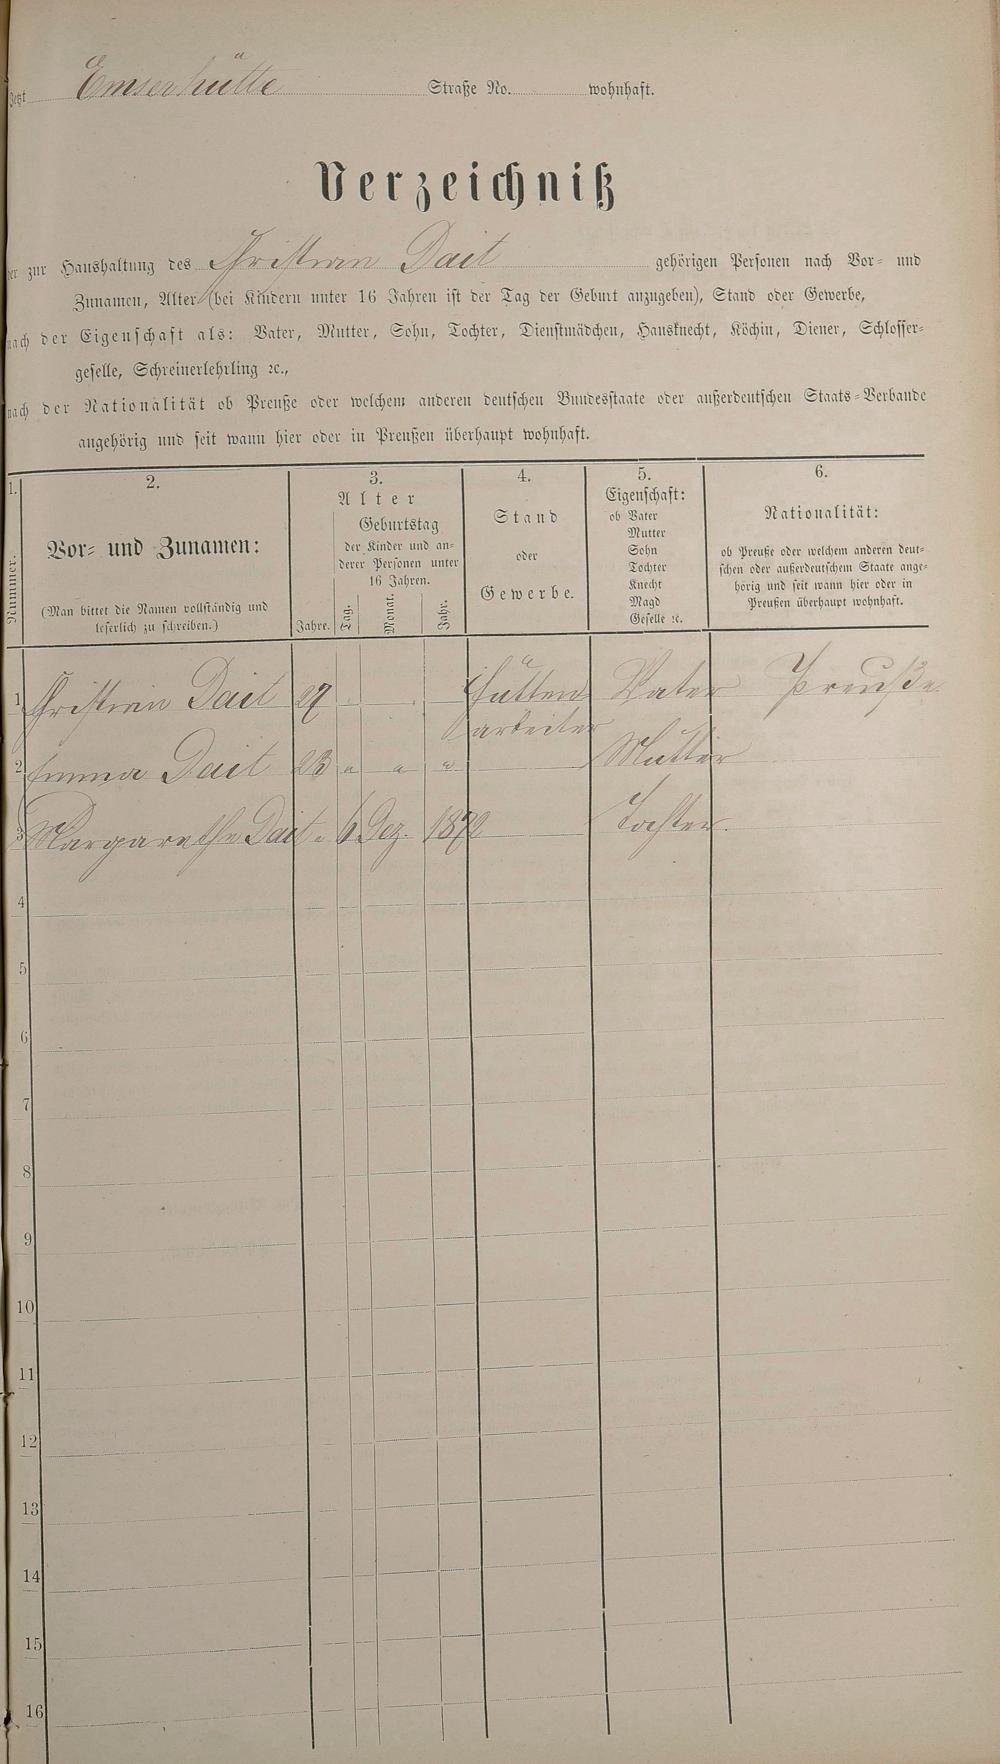 Jetzt Emserhütte Straße No. wohnhaft.
Verzeichniß
der zur Haushaltung des Christian Dait gehörigen Personen nach Vor- und
Zunamen, Alter (bei Kindern unter 16 Jahren ist der Tag der Geburt anzugeben), Stand oder Gewerbe,
nach der Eigenschaft als: Vater, Mutter, Sohn, Tochter, Dienstmädchen, Hausknecht, Köchin, Diener, Schlosser-
geselle, Schreinerlehrling ꝛc.,
nach der Nationalität ob Preuße oder welchem anderen deutschen Bundesstaate oder außerdeutschen Staats-Verbande
angehörig und seit wann hier oder in Preußen überhaupt wohnhaft.
1.
Nummer.
2.
Vor- und Zunamen:
(Man bittet die Namen vollständig und
leserlich zu schreiben.)
3.
Alter
Jahre.
Geburtstag
der Kinder und an-
derer Personen unter
16 Jahren.
Tag. Monat. Jahr.
4.
Stand
oder
Gewerbe.
5.
Eigenschaft:
ob Vater
Mutter
Sohn
Tochter
Knecht
Magd
Geselle ꝛc.
6.
Nationalität:
ob Preuße oder welchem anderen deut-
schen oder außerdeutschem Staate ange-
hörig und seit wann hier oder in
Preußen überhaupt wohnhaft.
1 Christian Dait 27 Hütten Vater Preuße
arbeiter
2 Emma Dait 23 " " " Mutter
3 Margarethe Dait " 6 Dez. 1872 Tochter.
4
5
6
7
8
9
10
11
12
13
14
15
16